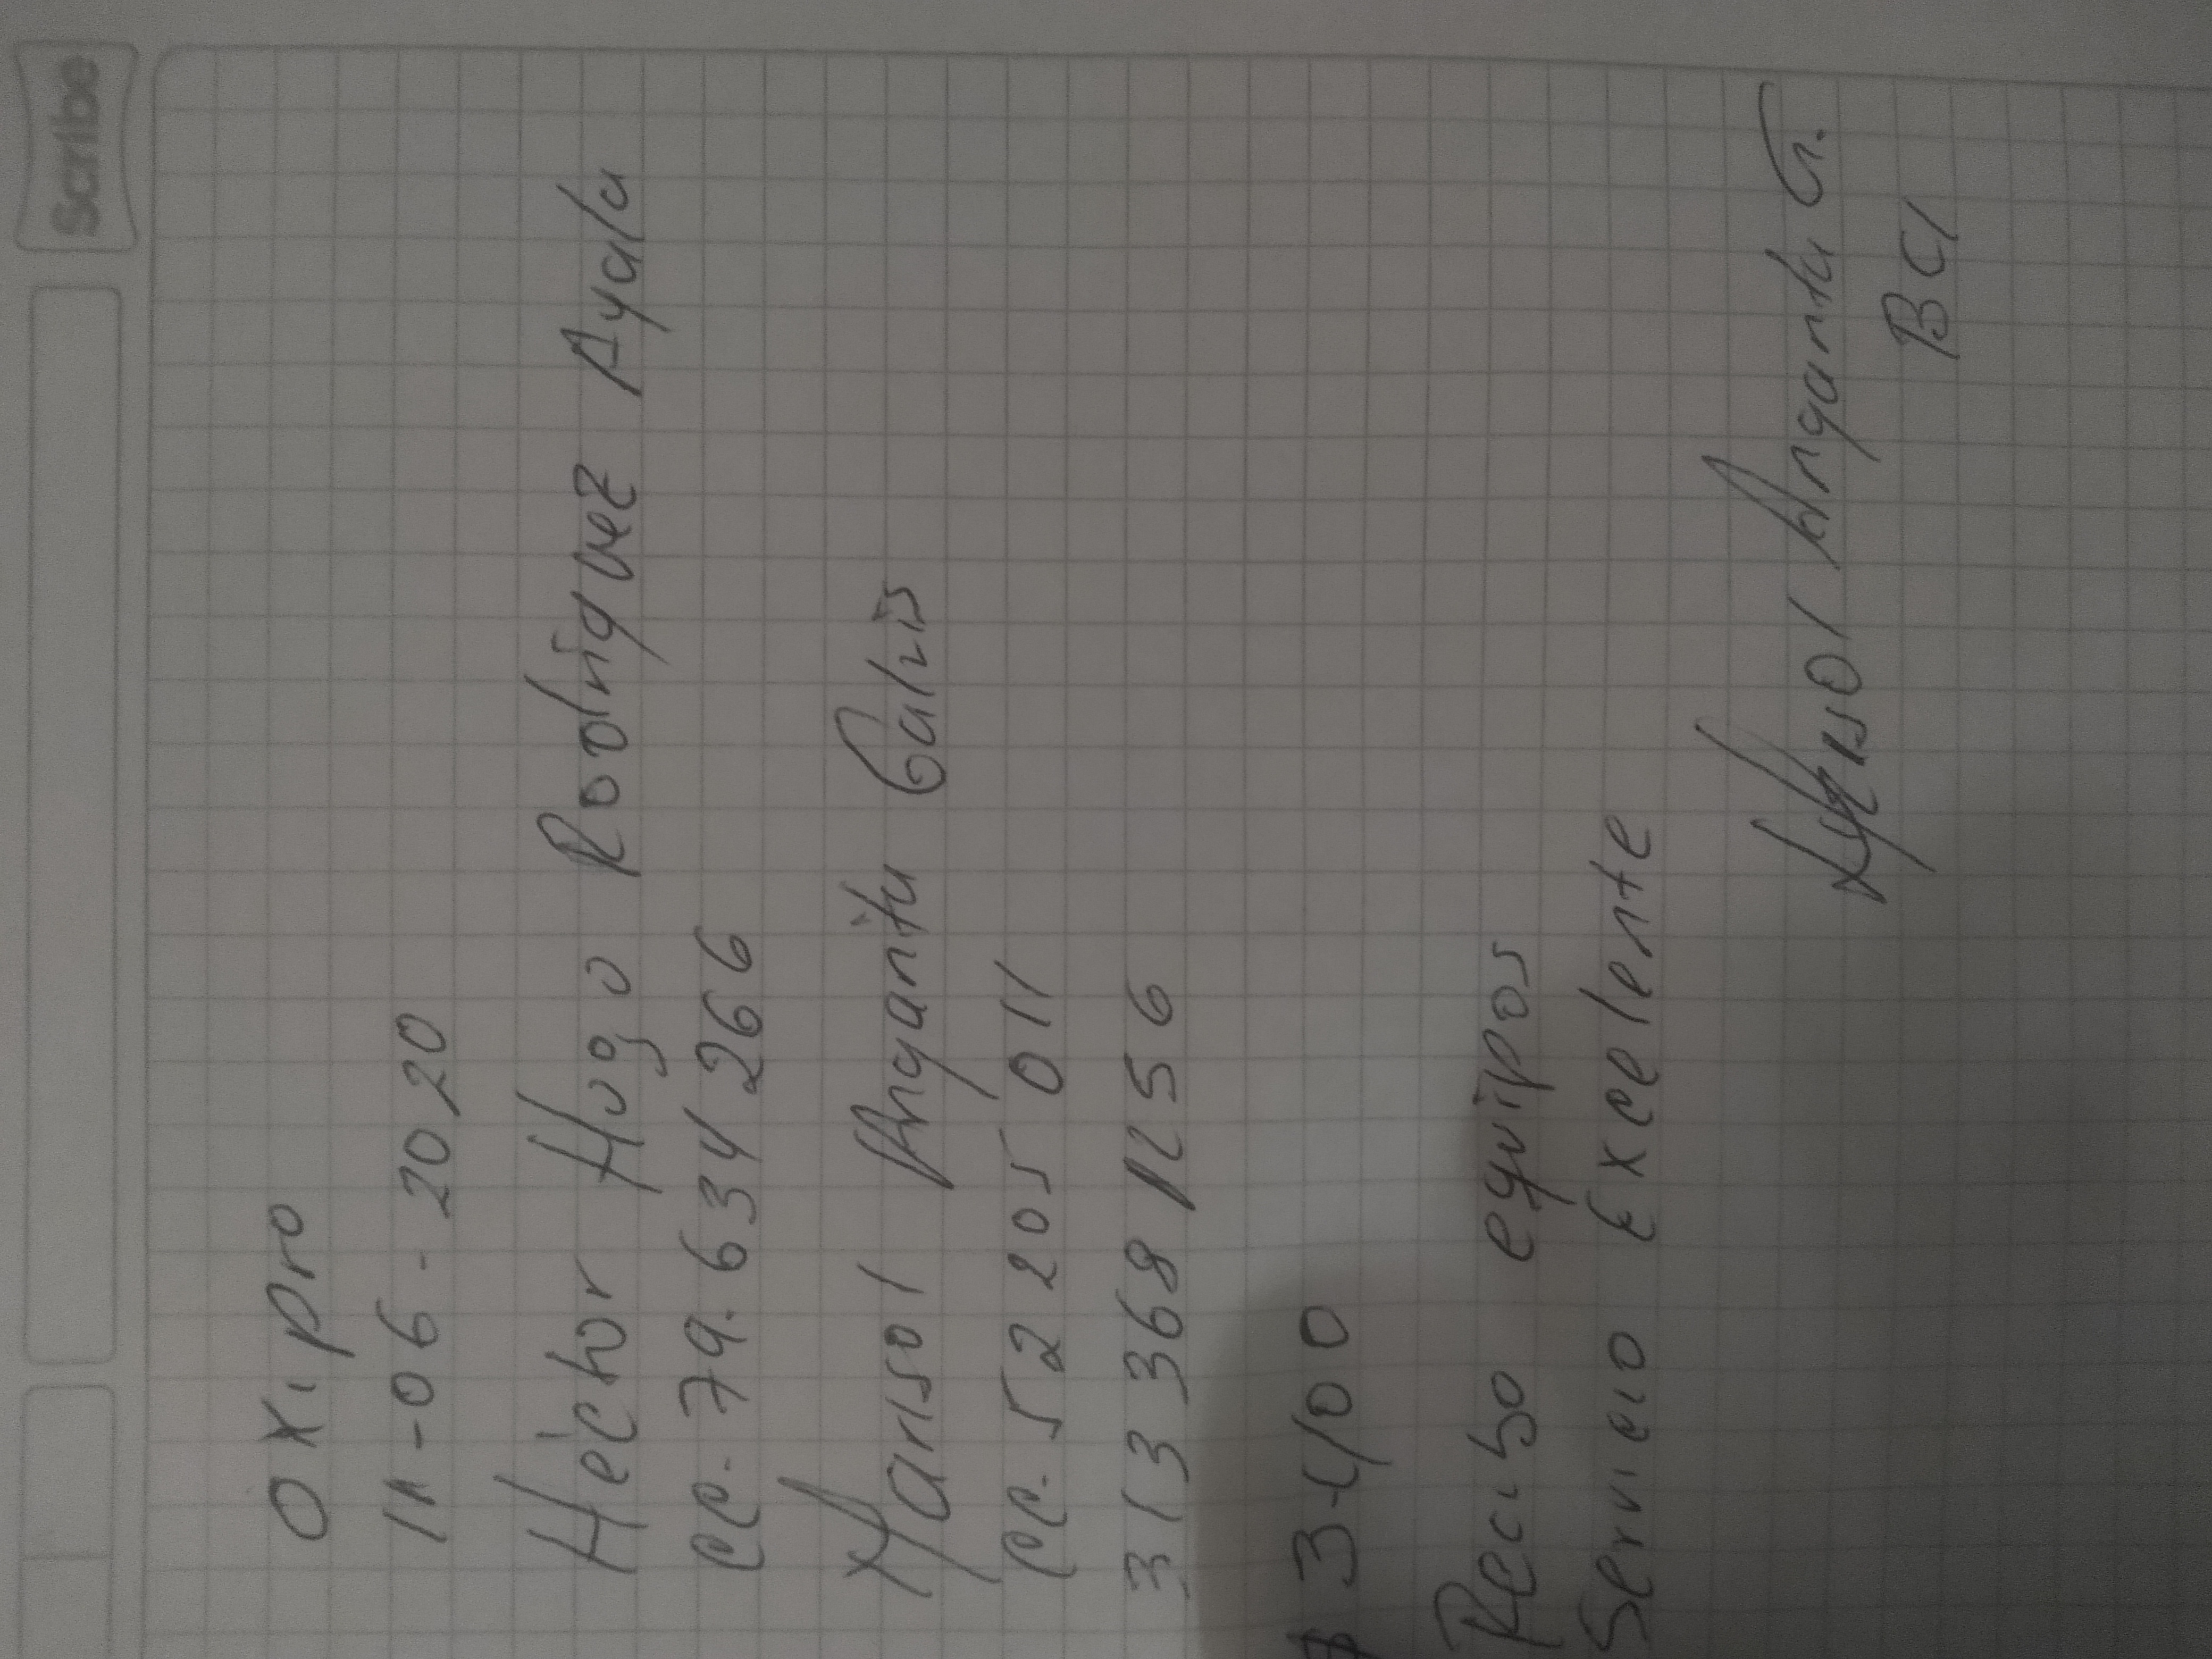 Scribe
Oxipro
11-06-2020
Héctor Hugo Rodriguez Ayala
CC. 79.634 266
Marisol Angarita Galvis
CC. 52 205 011
313 368 1256
$ 3400
Recibo equipos
Servicio Excelente
Marisol Angarita G.